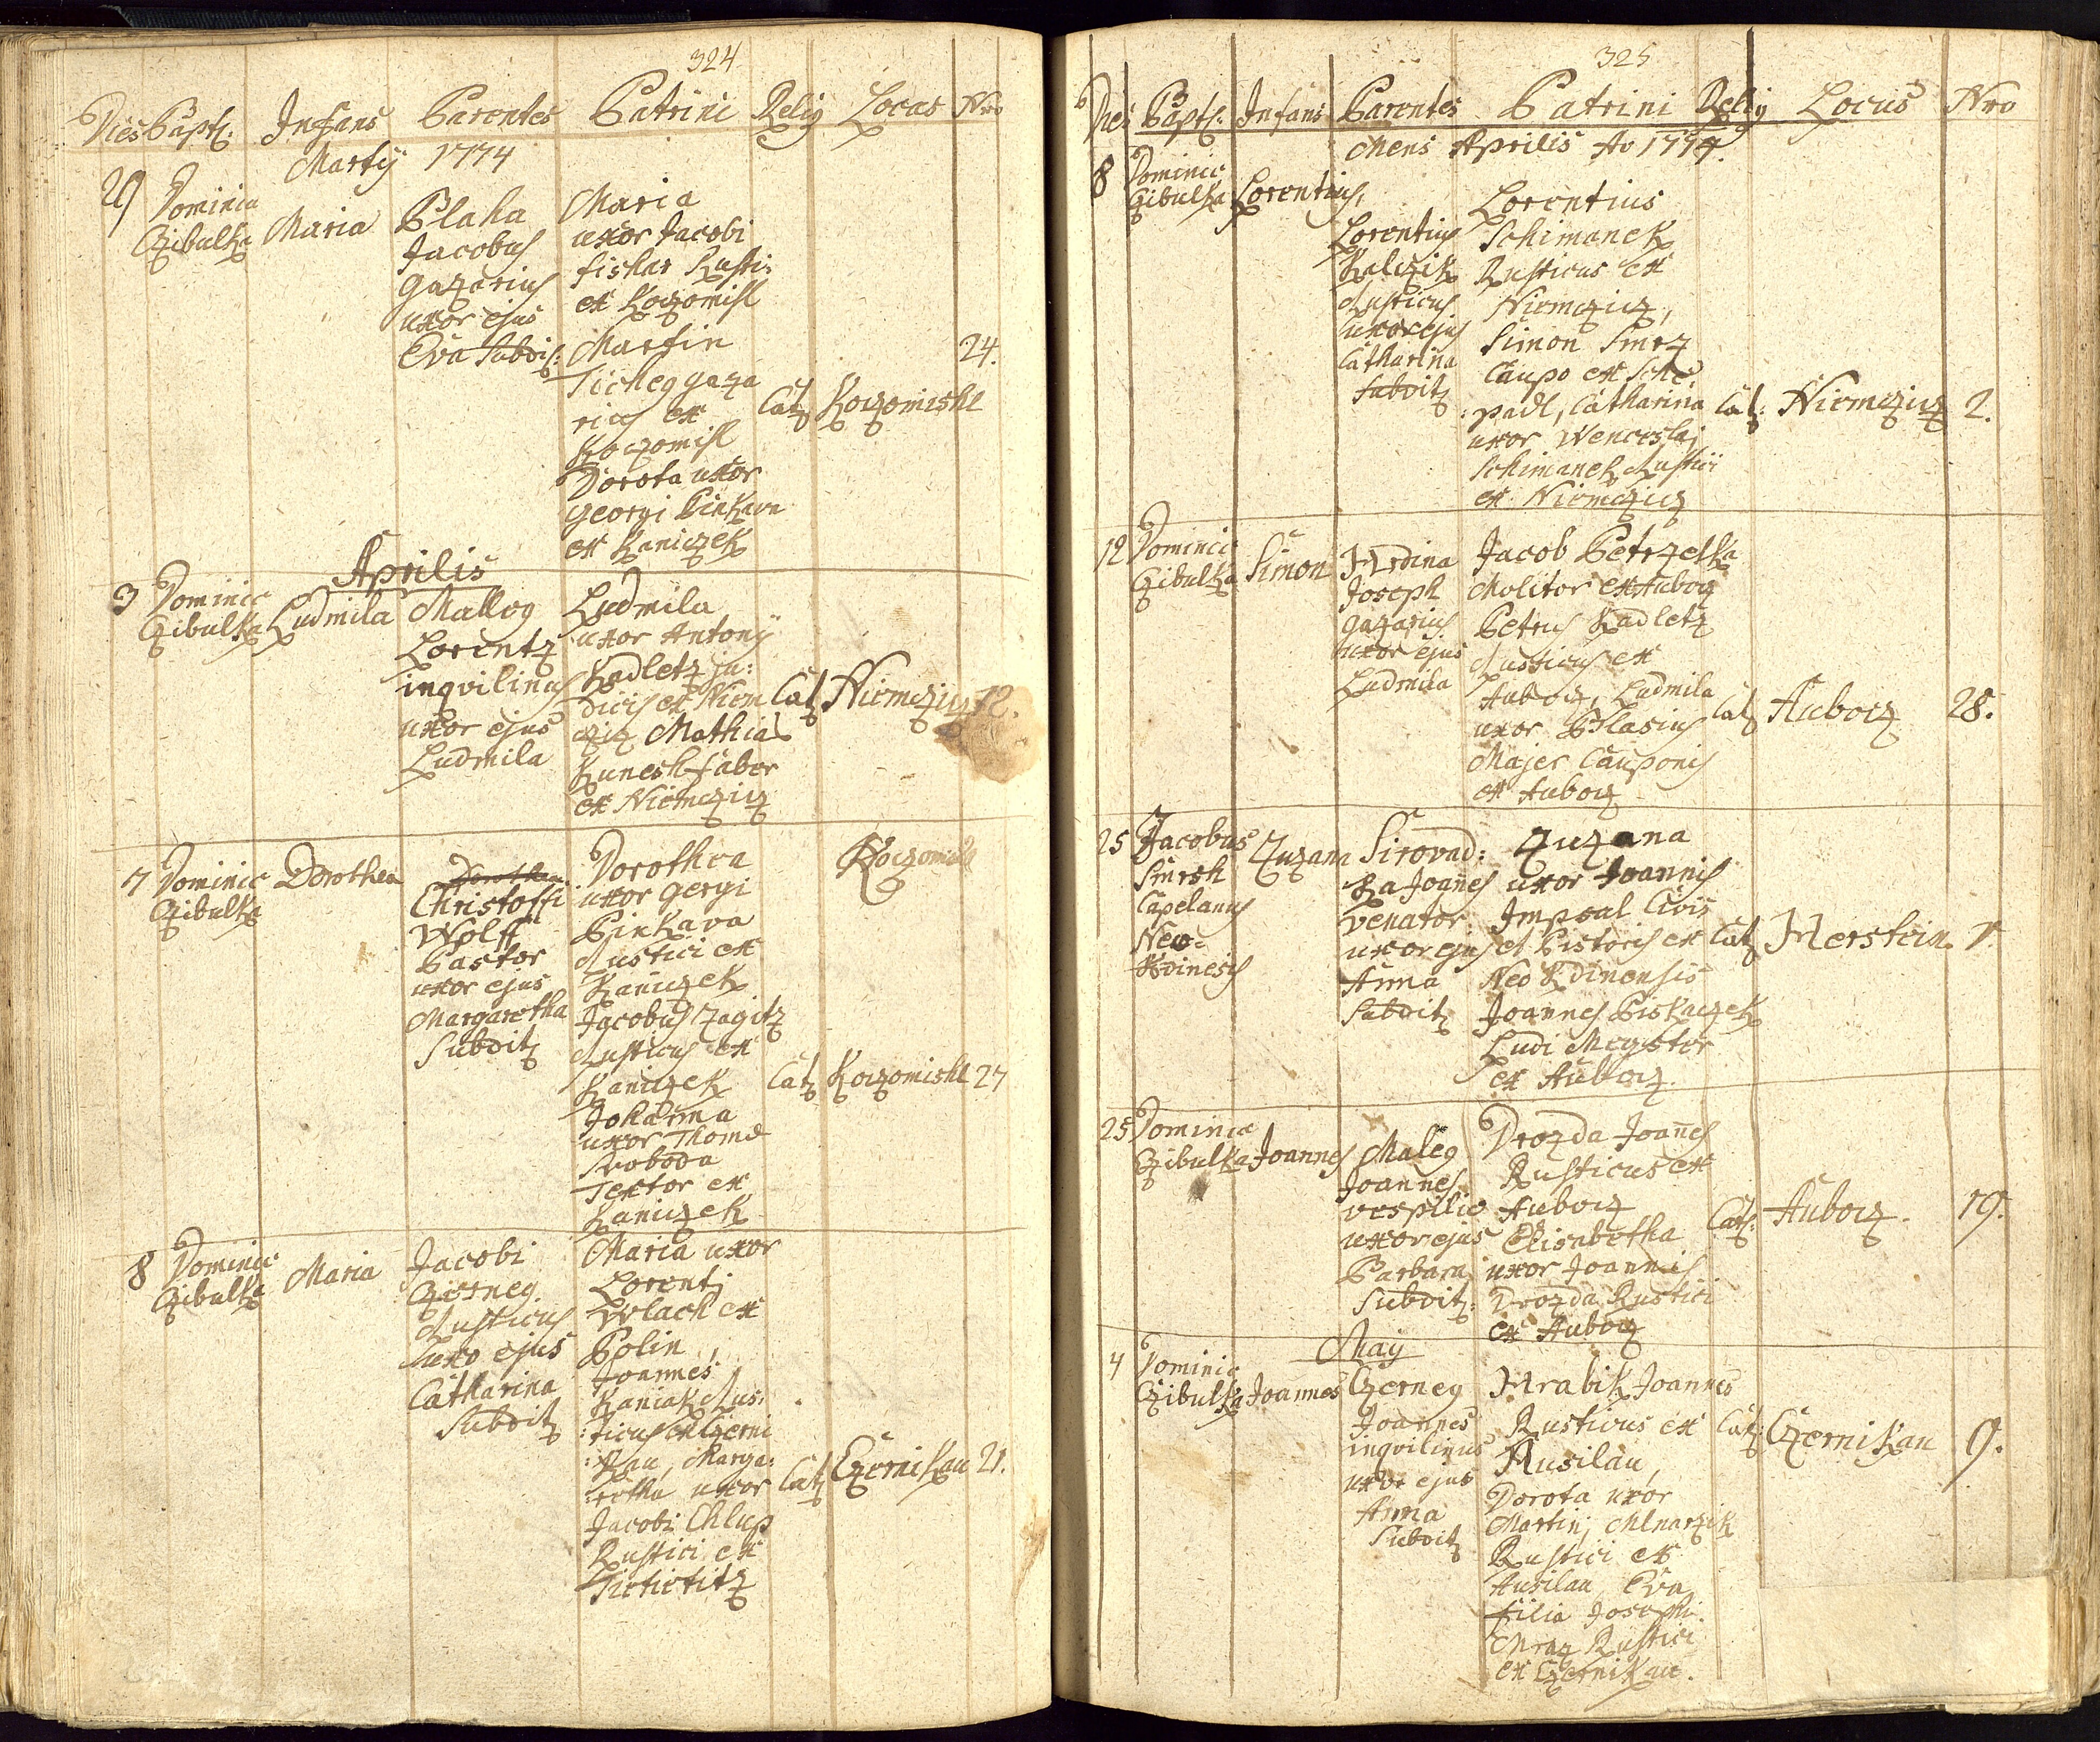 324
Dies Bapt: Infans Parentes Patrini Relig Locus Nro
Martij 1774
29 Dominic Czibulka
Maria
Blaha
Jacobus
gazarius
uxor ejus
Eva Subdit:
Maria
uxor Jacobi
fishar Rusti:
ex Koczomisl
Martin
Ticheg gaza
rius ex
Koczomisl
Dorota uxor
Georgi Pinkava
ex Kaniczek
Cat
Koczomishl
24.
Aprilis
3 Dominic
Czibulka
Ludmila
Malleg
Lorentz
inqvilinus
uxor ejus
Ludmila
Ludmila
uxor Antonij
Kadletz ju:
dicis ex Niem
cziz Mathias
Kunesh faber
ex Niemcziz
Cat
Niemcziz 12.
7 Dominic
Czibulka
Dorothea
Dorothea
Christoffi
Wolff
Pastor
uxor ejus
Margaretha
Subdit
Dorothea
uxor gergi
Pinkava
Rustici ex
Kaniczek
Jacobus Zagitz
Rusticus ex
Kaniczek
Johanna
uxor Thomæ
Svoboda
Textor ex
Kaniczek
Koczomishl
Cat
Koczomishl 27
8 Dominic
Czibulka
Maria
Jacobi
Czerneg
Rusticus
uxo ejus
Catharina
Subdit
Maria uxor
Lorentj
Wlach ex
Polin
Joannes
Kaniak Rus:
:ticus ex Czerni
:kau, Marga:
:retha uxor
Jacobi Chlup
Rustici ex
Tictictitz
Cat
Czernikau 21.
325
Dies Bapt: Infans Parentes Patrini Relig Locus Nro
Mens Aprilis Ao 1774.
8 Dominic
Czibulka
Lorentius,
Lorentius
Kalczik
Rusticus
uxor ejus
Catharina
Subdit
Lorentius
Schimanek
Rusticus ex
Niemcziz,
Simon Smrz
Caupo ex Sche
:padl, Catharina
uxor Wenceslaj
Schimanek Rustici
ex Niemcziz
Cat:
Niemcziz 2.
12 Dominic
Czibulka
Simon
Hrdina
Joseph
gazarius
uxor ejus
Ludmila
Jacob Petrzelka
Molitor ex Auboz
Petrus Kadletz
Rusticus ex
Auboz, Ludmila
uxor Blasius
Majer Cauponis
ex Auboz
Cat
Auboz
28.
25 Jacobus
Smrsh
Capelanus
Neo-
Kdinesis
Zuzana
Sirovad:
ka Joañes
venator
uxor ejus
Anna
Subdit
Zuzana
uxor Joannis
Imseal Civis
et Pistoris ex
Neo Kdinensis
Joannes Piskaczek
Ludi Magister
ex Auboz.
Cat
Herstein. 1.
25 Dominic
Czibulka
Joannes
Maleg
Joannes
vespilio
uxor ejus
Barbara
Subdit:
Drozda Joañes
Rusticus ex
Auboz
Elisabetha
uxor Joannis
Drozda Rustici
ex Auboz
Cat:
Auboz.
19.
May
4 Dominic
Czibulka
Joannes
Czerneg
Joannes
inqvilinus
uxor ejus
Anna
Subdit
Hrabik Joannes
Rusticus ex
Ausilau,
Dorota uxor
Martinj Mlnarzik
Rustici ex
Ausilau, Eva
filia Josephi
Mraz Rustici
ex Czernikau.
Cat:
Czernikau 9.